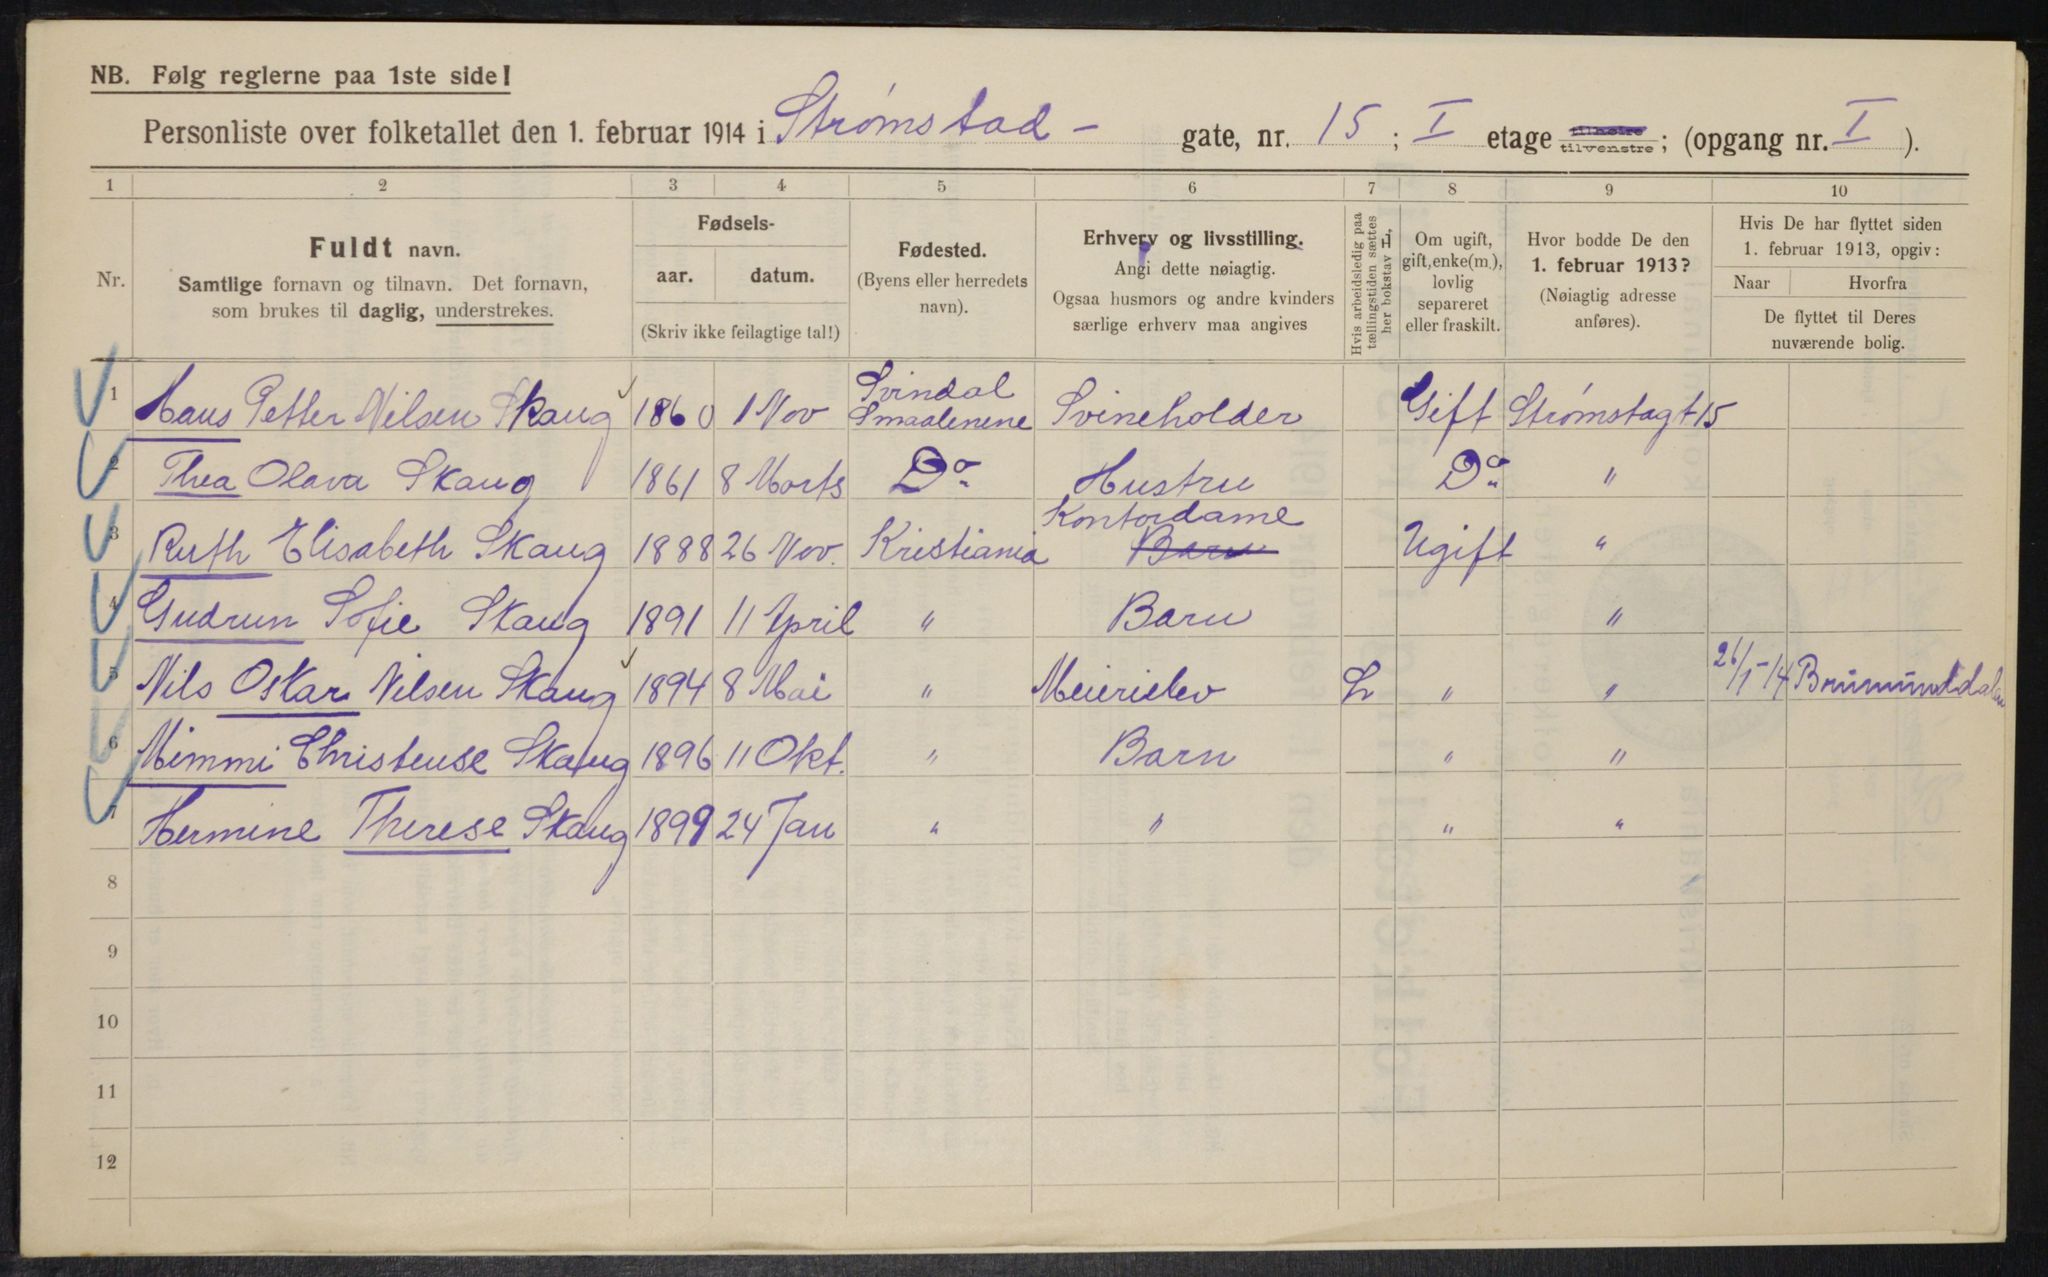 NB. Følg reglerne paa 1ste side!
Personliste over folketallet den 1. februar 1914 i Strømstad - gate, nr. 15 ; I etage tilhøire tilvenstre ; (opgang nr. I ).
1 2 3 4 5 6 7 8 9 10
Nr.
Fuldt navn.
Samtlige fornavn og tilnavn. Det fornavn,
som brukes til daglig, understrekes.
Fødsels-
aar. datum.
(Skriv ikke feilagtige tal!)
Fødested.
(Byens eller herredets
navn).
Erhverv og livsstilling.
Angi dette nøiagtig.
Ogsaa husmors og andre kvinders
særlige erhverv maa angives
Hvis arbeidsledig paa
tællingstiden sættes
her bokstav L,
Om ugift,
gift, enke(m.),
lovlig
separeret
eller fraskilt.
Hvor bodde De den
1. februar 1913?
(Nøiagtig adresse
anføres).
Hvis De har flyttet siden
1. februar 1913, opgiv:
Naar Hvorfra
De flyttet til Deres
nuværende bolig.
1 Hans Petter Nilsen Skaug 1860 1 Nov Svindal Smaalenene Svineholder Gift Strømstagt 15
2 Thea Olava Skaug 1861 8 Marts Do Hustru Do "
3 Ruth Elisabeth Skaug 1888 26 Nov. Kristiania Kontordame Barn Ugift "
4 Gudrun Sofie Skaug 1891 11 April " Barn "
5 Nils Oskar Nilsen Skaug 1894 8 Mai " Meierielev L " " 26/1-14 Brumunddalen
6 Mimmi Christense Skaug 1896 11 Okt. " Barn " "
7 Hermine Therese Skaug 1899 24 Jan " " " "
8
9
10
11
12